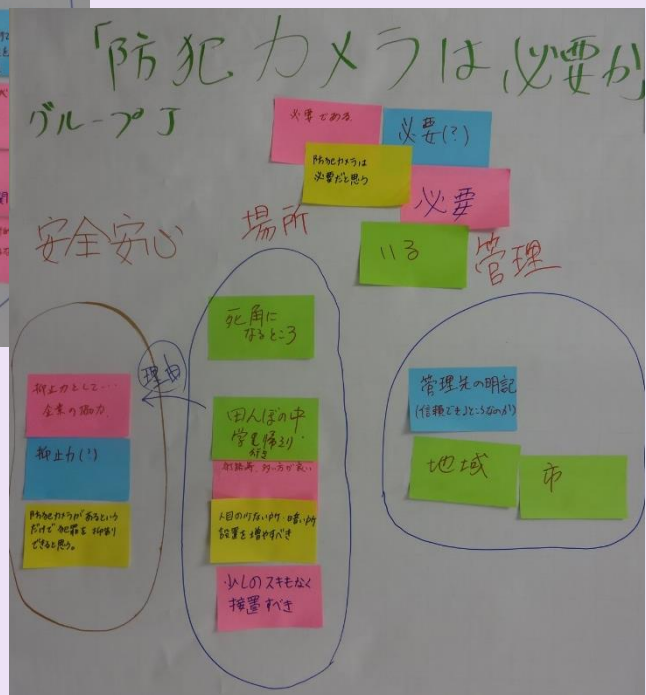 「防犯カメラは必要か」
グループJ
必要である
必要(?)
防犯カメラは
必要だと思う
必要
いる
安全安心
場所
管理
死角に
なるところ
理由
抑止力として…
企業の協力
抑止力(?)
防犯カメラがあるという
だけで犯罪を抑制
できると思う。
田んぼの中
学生帰り
行き
方が良い
人目の少ない所・暗い所
設置を増やすべき
少しのスキもなく
接置すべき
管理先の明記
(信頼できるところなのか)
地域
市